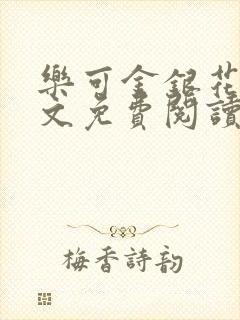 樂可金銀花
文免費閱讀
梅香詩韵